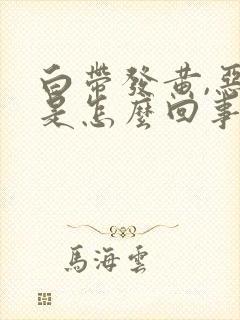 白帶發黃,惡
是怎麼回事
馬海雲